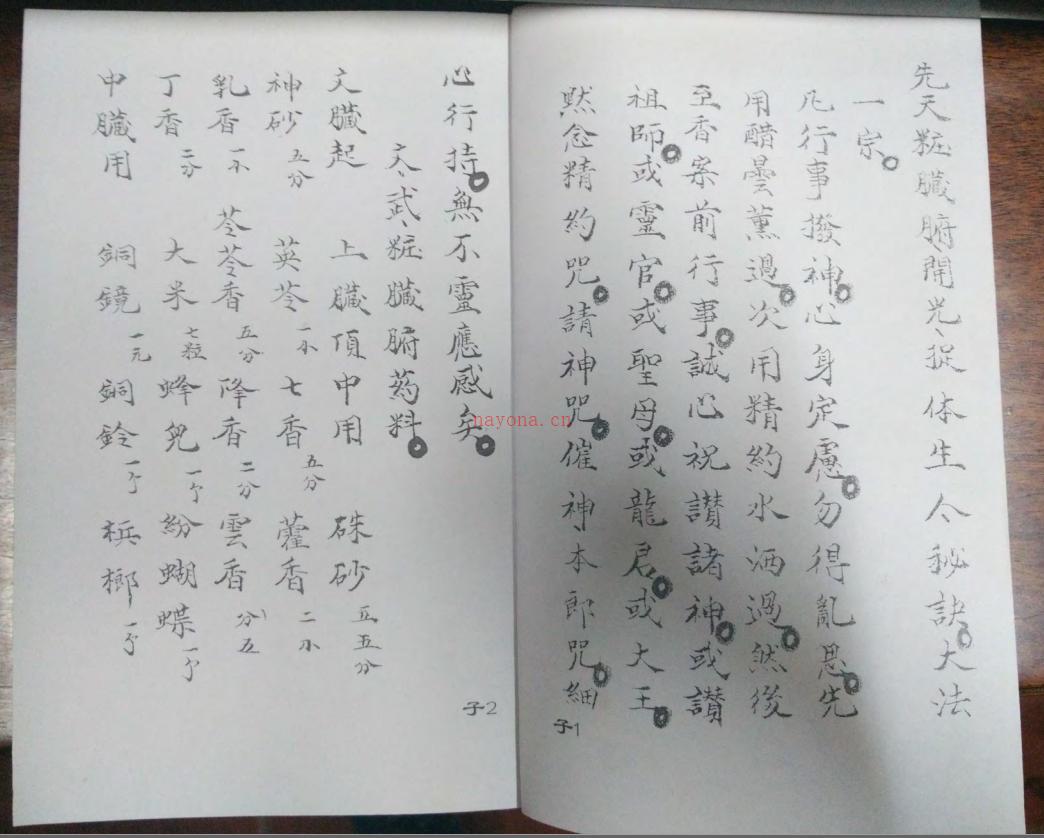 先天粧臟腑開光捉体生人秘訣大法
一宗
凡行事撥神心身定慮勿得亂思先
用醋曇薰過次用精約水洒過然後
至香案前行事誠心祝讃諸神或讃
祖師或靈官或聖母或龍君或大王
黙念精約咒請神咒催神本郎咒細
子1
心行持無不靈應感矣
文武粧臟腑药料
文臟起 上臟頂中用 硃砂 五分
神砂 五分 英苓 一小 七香 五分 藿香 二小
乳香 一小 苓苓香 五分 降香 二分 雲香 分五
丁香 二分 大米 七粒 蜂兒 一个 紛蝴蝶 一个
中臟用 銅鏡 一元 銅鈴 一个 梹榔 一个
子2
nayona.cn